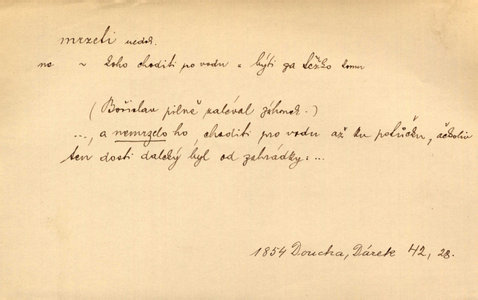 mrzeti nedok.
ne ~ koho choditi pro vodu = býti za těžko komu
(Bořislav pilně zaléval záhonek.)
..., a nemrzelo ho choditi pro vodu až ku potůčku, ačkoliv
ten dosti daleký byl od zahrádky: ...
1854 Doucha, Dárek 42, 28.